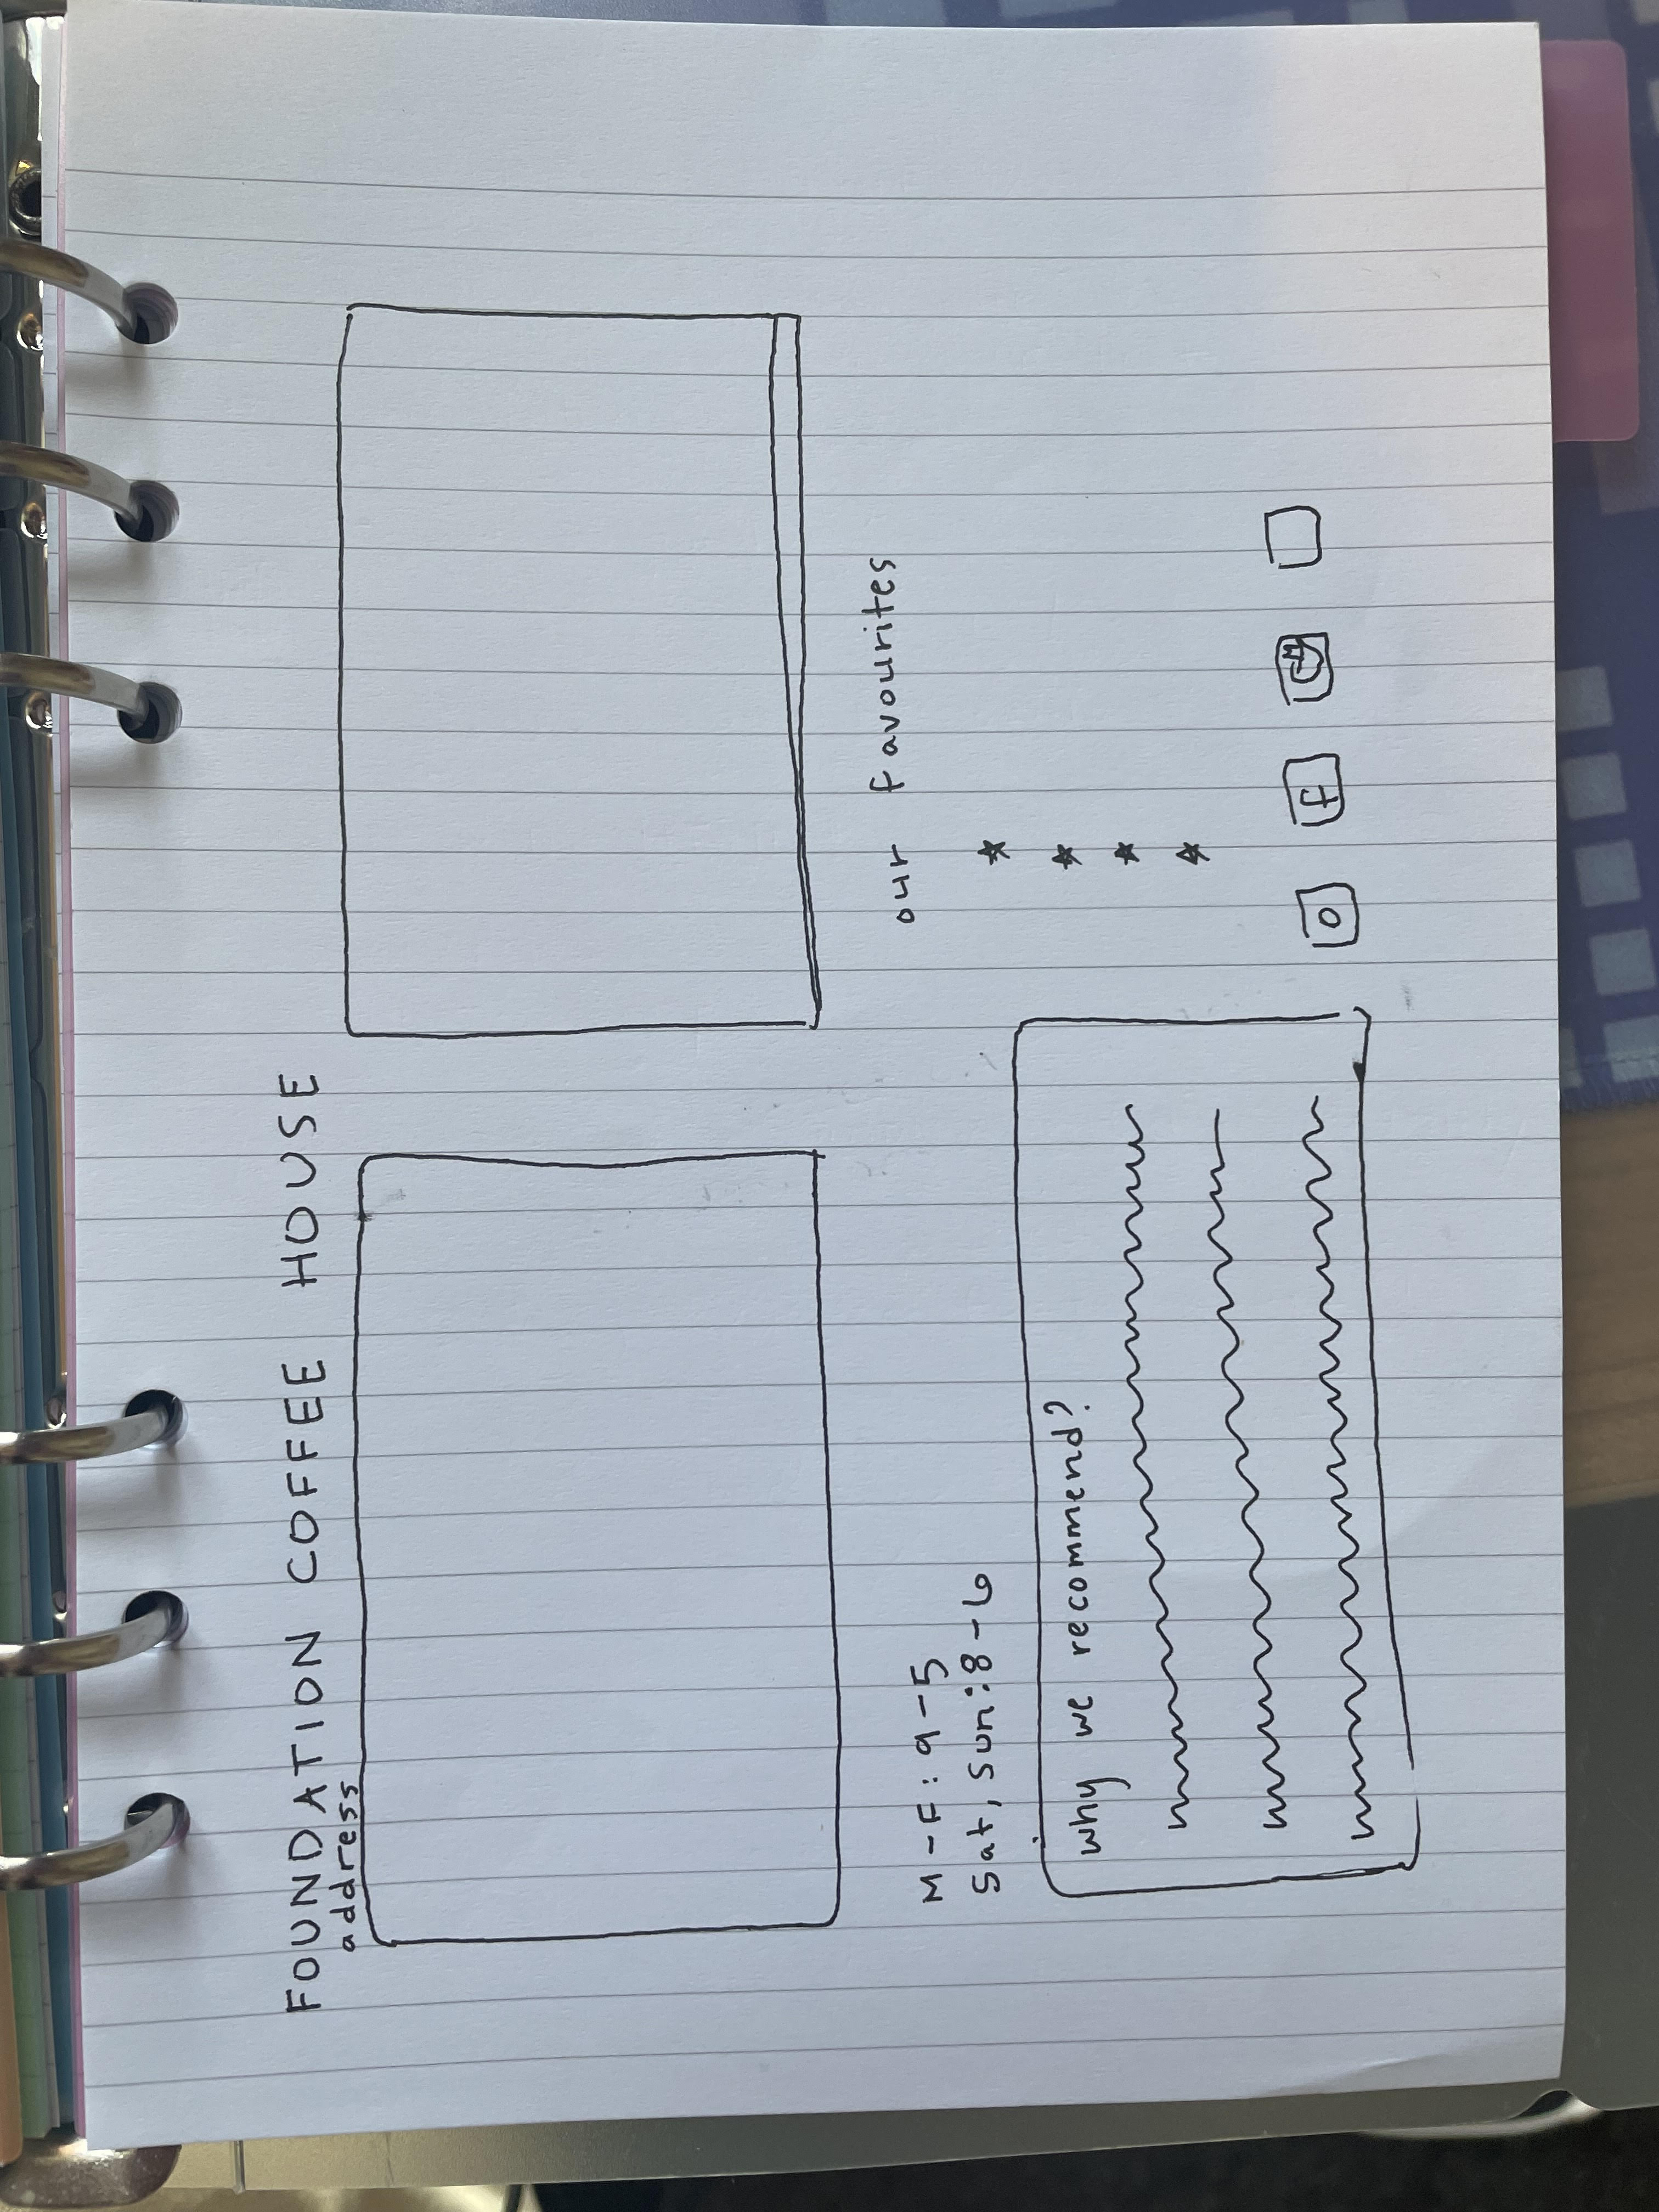 FOUNDATION COFFEE HOUSE
address
M-F: 9-5
Sat, Sun: 8-6
why we recommend?
our favourites
f